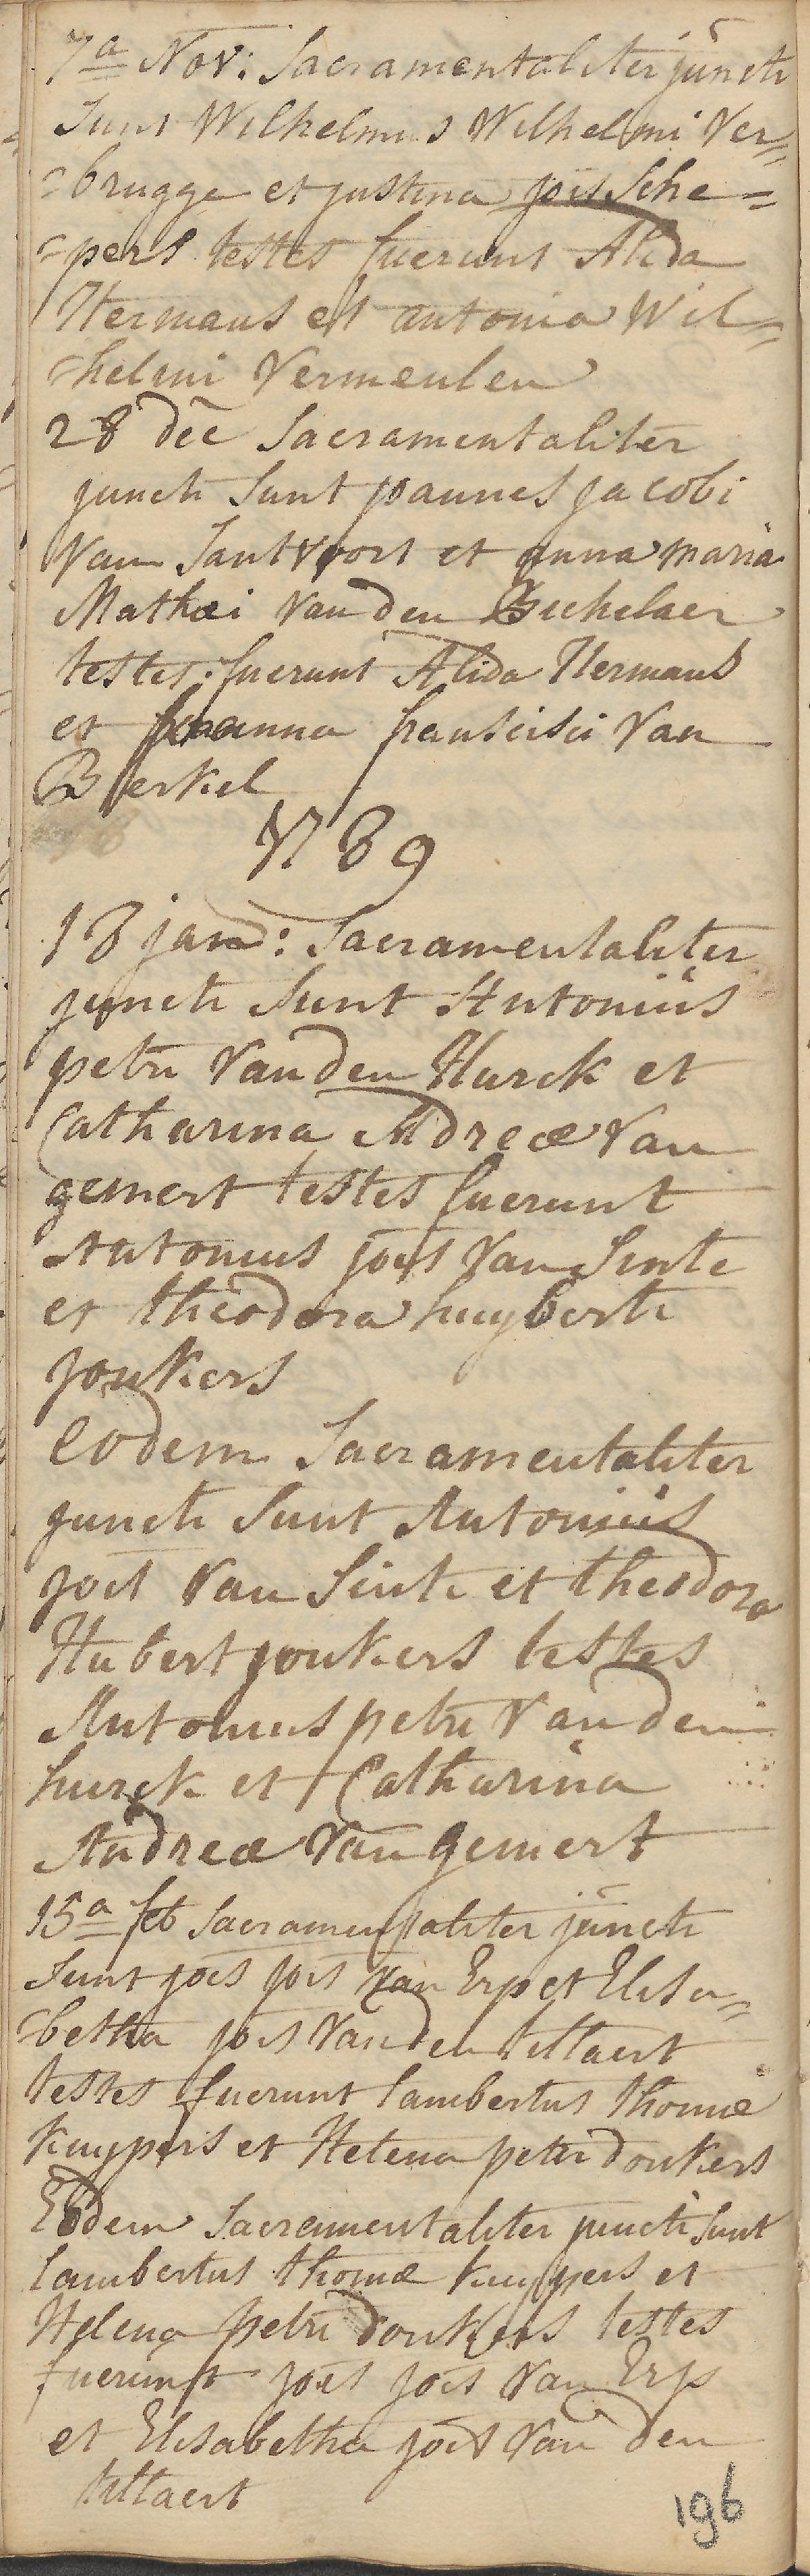 7a Nov: Sacramentaliter juncti
Sunt Wilhelmus Wilhelmi Ver=
=brugge et justina jois Sche=
=pers testes fuerunt Alida
Hermans et antonia Wil=
=helmi Vermeulen
28 dec Sacramentaliter
juncti Sunt joannes jacobi
Van Santvoort et anna maria
Mathæi Van den
testes: fuerunt Alida Hermans
et joanna fransisci Van
Berkel
1789
18 jan: Sacramentaliter
juncti Sunt Antonius
petri Van den Hurck et
Catharina Andreæ Van
gemert testes fuerunt
Antonius jois Van Sinte
et theodora huyberti
jonkers
Eodem Sacramentaliter
juncti Sunt Antonius
jois Van Sinte et theodora
Hubert jonkers testes
Antonius petri Van den
hurck et Catharina
Andreæ Van gemert
15a feb Sacramentaliter juncti
Sunt jois jois Van Erp et Elisa=
=betha jois Van den tillaert
testes fuerunt lambertus thomæ
kuypers et Helena petri donkers
Eodem Sacramentaliter juncti Sunt
lambertus thomæ kuypers et
Helena petri donkers testes
fuerunt jois jois Van Erp
et Elisabetha jois Van den
tillaert
196